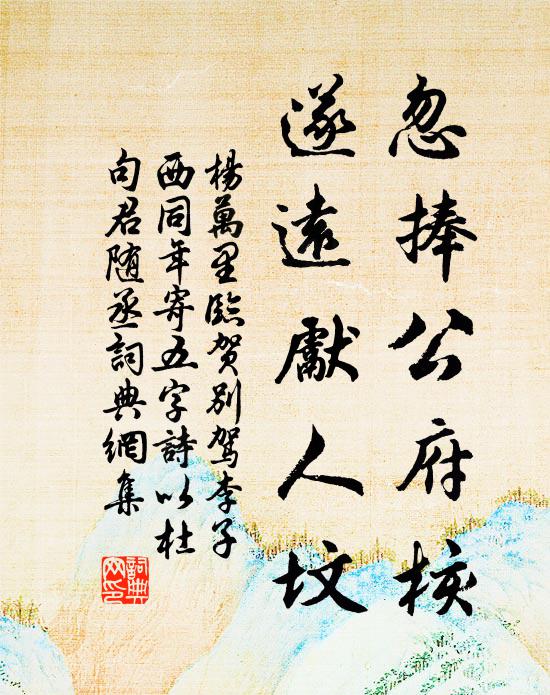 忽捧公府核
遂遠獻人墳
楊萬里臨賀别駕李子
西同年寄五字詩以杜
句君随丞詞典網集
詞典
网印